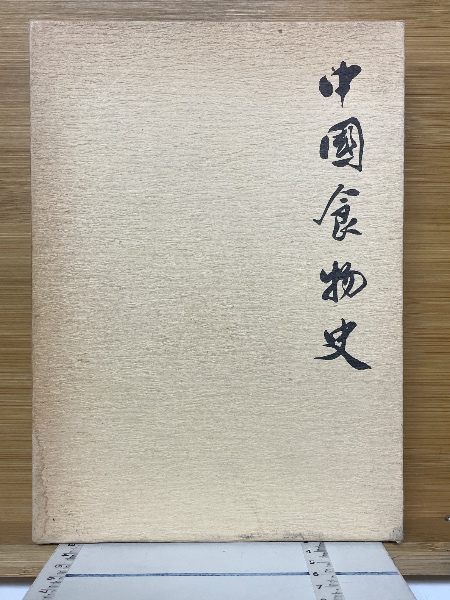 中國食物史